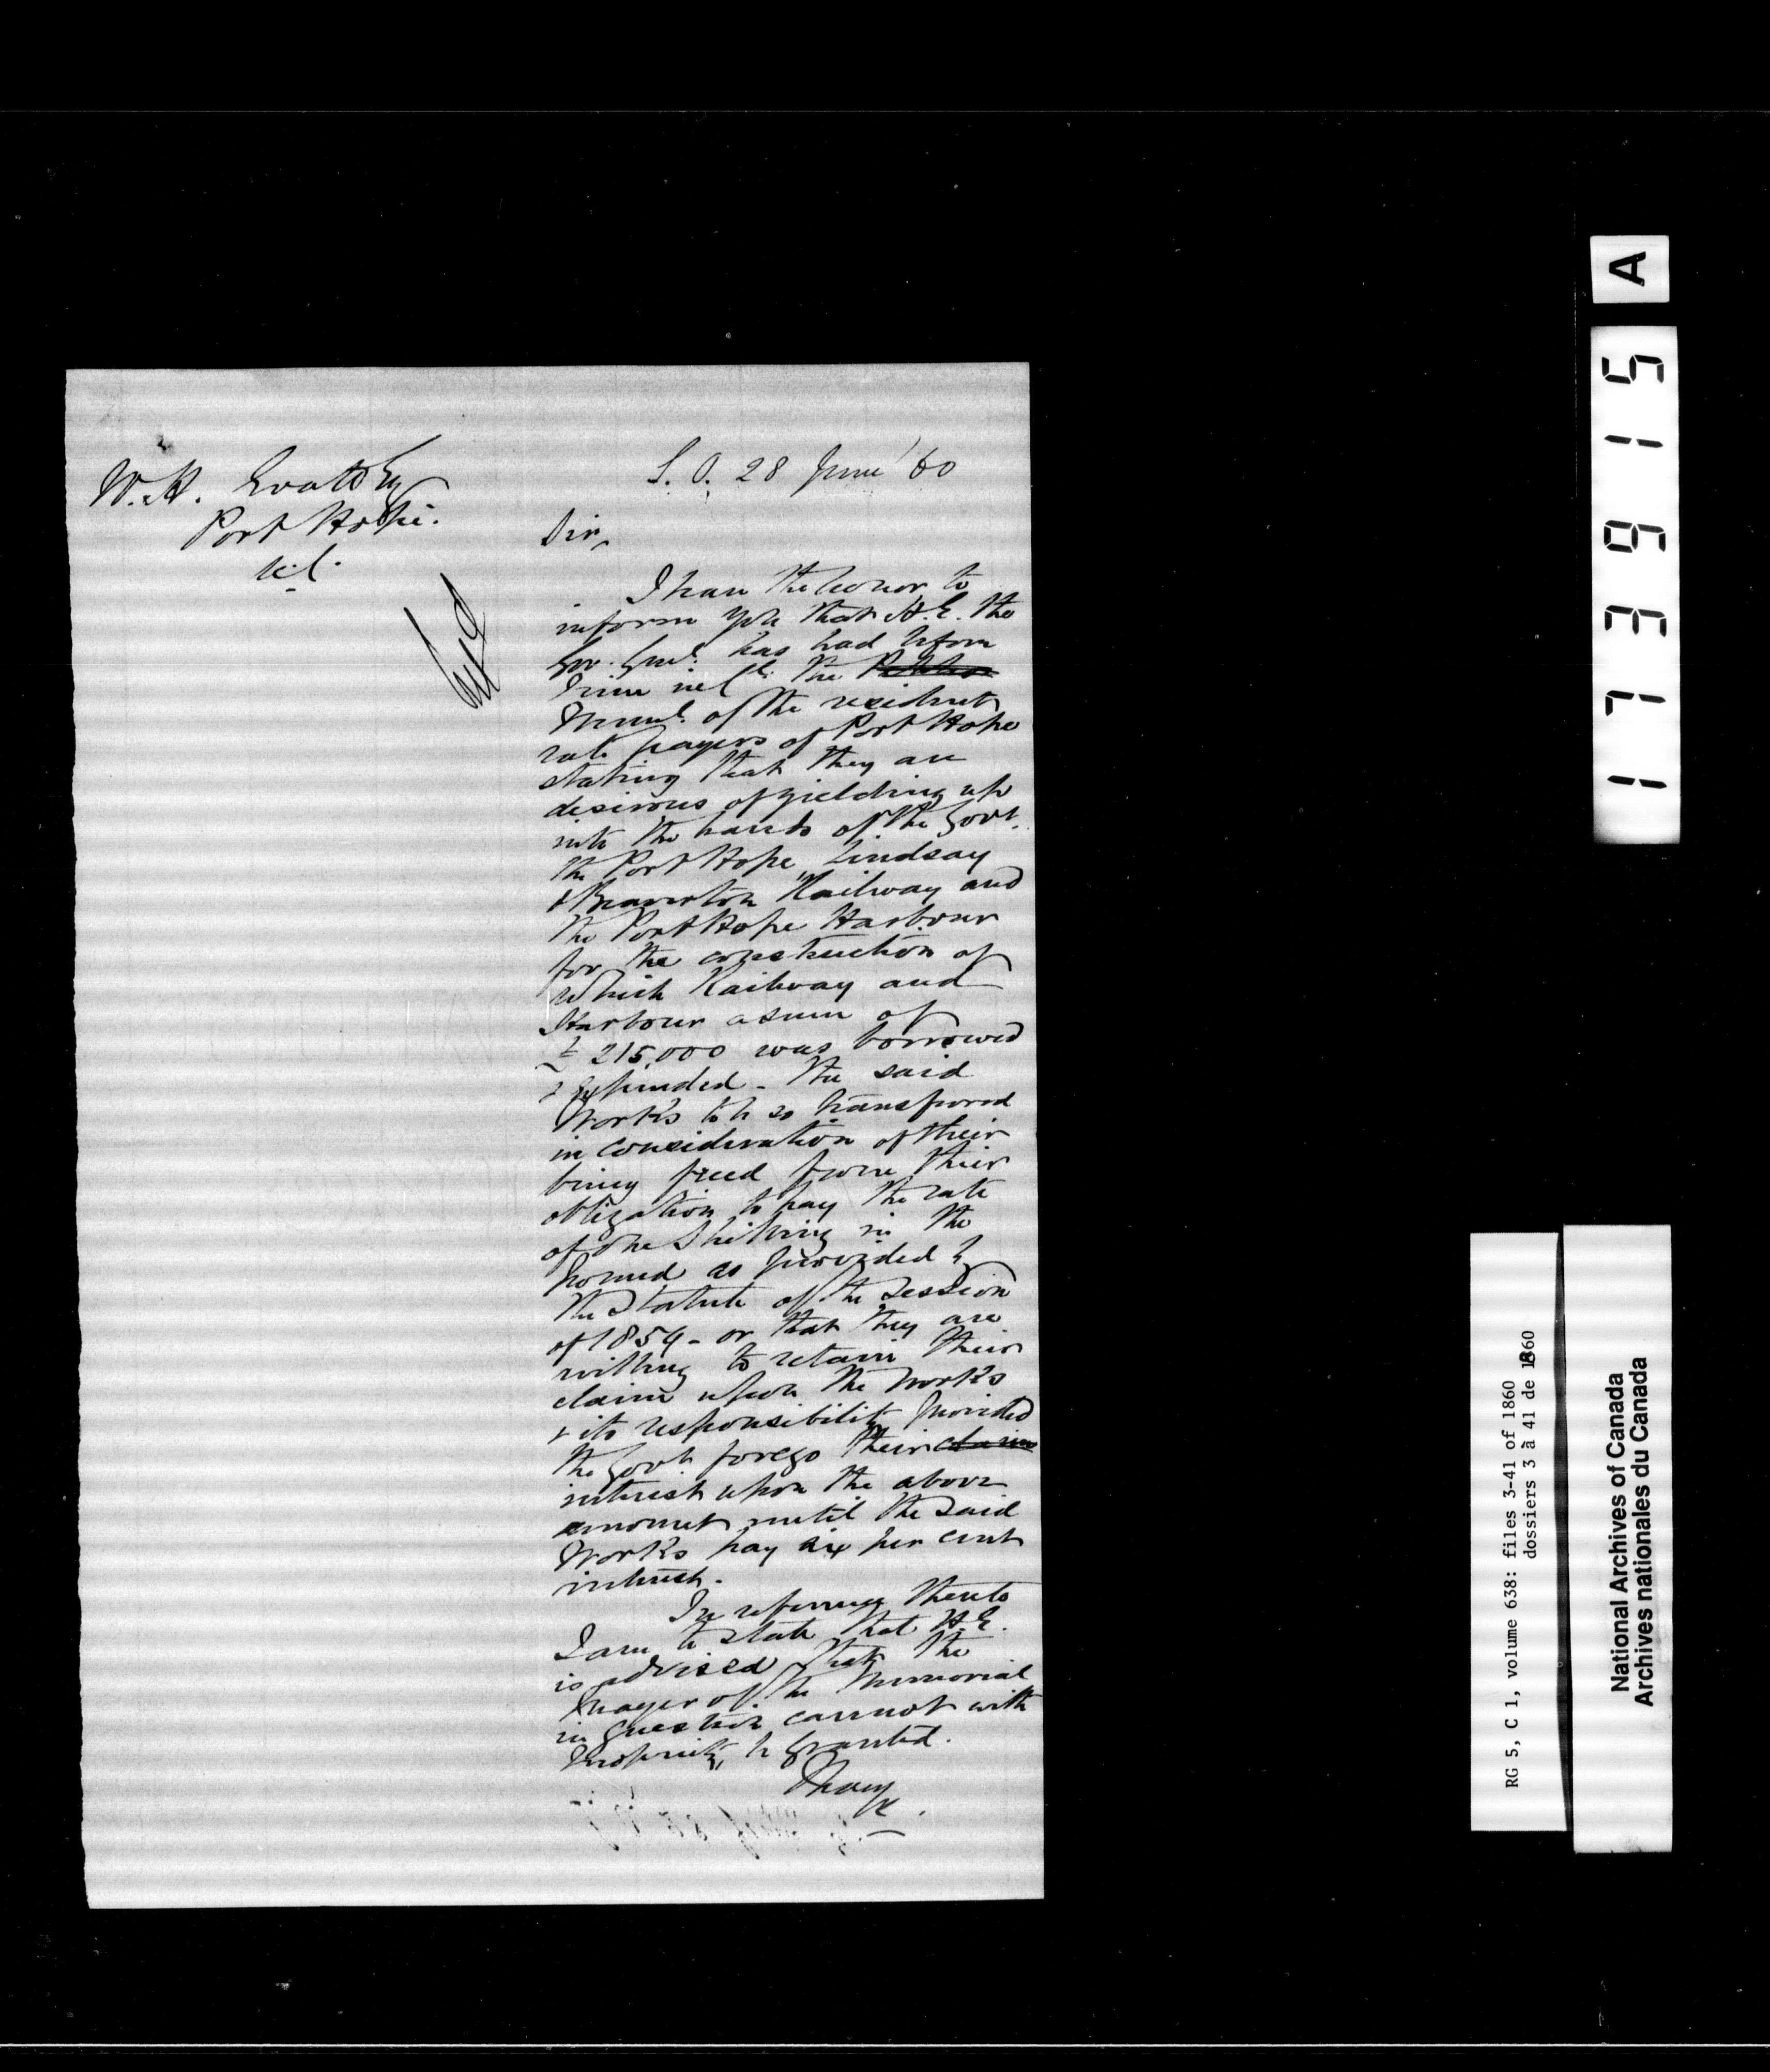 W.H. Evatt Esq
Port Hope.
S.O. 28 June '60
Sir,
I have the honor to
inform you that H.E. the
Gov. Genl. has had before
him in Cl. the Petition
Meml. of the resident
rate payers of Port Hope
stating that they are
desirous of yielding up
into the hands of the Govt.
the Port Hope, Lindsay
& Beaverton Railway and
the Port Hope Harbour
for the construction of
which Railway and
Harbour a sum of
£215,000 was borrowed
& expended - the said
Works to be so transferred
in consideration of their
being freed from their
obligation to pay the rate
of one shilling in the
pound as provided by
the Statute of the Session
of 1859 - or that they are
willing to retain their
claim upon the works
& its responsibility provided
the Govt. forego their claim
interest upon the above
amount until the said
Works pay six per cent
interest.
In referring thereto
I am to state that H.E.
is advised that the
prayer of the Memorial
in question cannot with
propriety be granted.
A
173915
RG 5, C 1, volume 638: files 3-41 of 1860
dossiers 3 à 41 de 1860
National Archives of Canada
Archives nationales du Canada